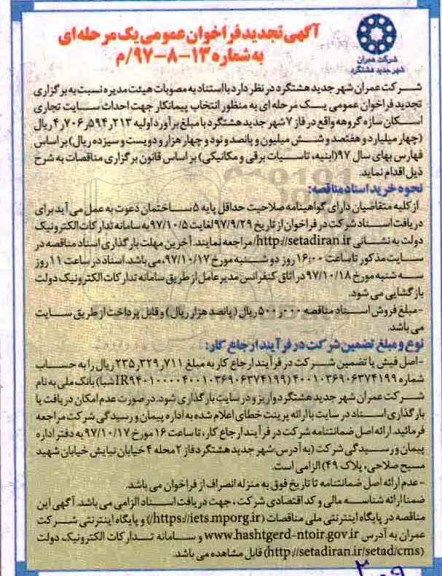 آگهی تجدید فراخوان عمومی یک مرحله‌ای
به شماره ۱۳-۸-۹۷/م
شرکت عمران
شهر جدید هشتگرد
شرکت عمران شهر جدید هشتگرد در نظر دارد با استناد به مصوبات هیئت مدیره نسبت به برگزاری
تجدید فراخوان عمومی یک مرحله ای به منظور انتخاب پیمانکار جهت احداث سایت تجاری
اسکان سازه گروهه واقع در فاز ۷ شهر جدید هشتگرد با مبلغ برآورد اولیه ۴٫۷۰۶٫۵۹۴٫۲۱۳ ریال
(چهار میلیارد و هفتصد و شش میلیون و پانصد و نود و چهار هزار و دویست و سیزده ریال) بر اساس
فهارس بهای سال ۹۷ (ابنیه، تاسیسات برقی و مکانیکی) بر اساس قانون برگزاری مناقصات به شرح
ذیل اقدام نماید.
نحوه خرید اسناد مناقصه:
از کلیه متقاضیان دارای گواهینامه صلاحیت حداقل پایه ۵ ساختمان دعوت به عمل می آید برای
دریافت اسناد شرکت در فراخوان از تاریخ ۹۷/۹/۲۹ لغایت ۹۷/۱۰/۵ به سامانه تدارکات الکترونیک
دولت به نشانی http://setadiran.ir/ مراجعه نمایند. آخرین مهلت بارگذاری اسناد مناقصه در
سایت مذکور تا ساعت ۱۶:۰۰ روز دوشنبه مورخ ۹۷/۱۰/۱۷ می باشد. اسناد در ساعت ۱۱ روز
سه شنبه مورخ ۹۷/۱۰/۱۸ در اتاق کنفرانس مدیر عامل از طریق سامانه تدارکات الکترونیک دولت
بازگشایی می شود.
- مبلغ فروش اسناد مناقصه ۵۰۰٫۰۰۰ ریال (پانصد هزار ریال) و قابل پرداخت از طریق سایت
می باشد.
نوع و مبلغ تضمین شرکت در فرآیند ارجاع کار:
- اصل فیش یا تضمین شرکت در فرآیند ارجاع کار به مبلغ ۲۳۵٫۳۲۹٫۷۱۱ ریال را به حساب
شماره ۴۰۰۱۰۳۶۹۰۶۳۷۴۱۹۹ (IR۹۴۰۱۰۰۰۰۴۰۰۱۰۳۶۹۰۶۳۷۴۱۹۹ شبا) بانک ملی به نام
شرکت عمران شهر جدید هشتگرد واریز و در سایت بارگذاری شود. در صورت عدم امکان دریافت یا
بارگذاری اسناد در سایت با ارائه پرینت خطای اعلام شده به اداره پیمان و رسیدگی شرکت مراجعه
فرمائید. ارائه اصل ضمانتنامه شرکت در فرآیند ارجاع کار، تا ساعت ۱۶ مورخ ۹۷/۱۰/۱۷ به دفتر اداره
پیمان و رسیدگی شرکت (به آدرس: شهر جدید هشتگرد فاز ۲ محله ۴ خیابان نیایش خیابان شهید
مسیح صلاحی، پلاک ۴۹) الزامی است.
- عدم ارائه اصل ضمانتنامه تا تاریخ فوق به منزله انصراف از فراخوان می باشد.
ضمنا ارائه شناسه مالی و کد اقتصادی شرکت، جهت دریافت اسناد الزامی می باشد. آگهی این
مناقصه در پایگاه اینترنتی ملی مناقصات (https://iets.mporg.ir/) و پایگاه اینترنتی شرکت
عمران به آدرس www.hashtgerd-ntoir.gov.ir و سامانه تدارکات الکترونیک دولت
(http://setadiran.ir/setad/cms) قابل مشاهده می باشد.